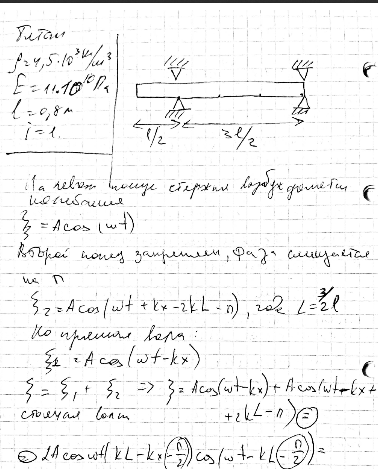 Титан
ρ=4,5·10³ кг/м³
E=11·10¹⁰ Па
l=0,8 м
i=1.
l/2
3l/2
На левом конце стержня возбуждается
колебание
ξ = A cos(ωt)
Второй конец закреплен, фаза смещается
на π
ξ₂ = A cos(ωt + kx - 2kL - π), где L = 3/2 l
Но прямая волна:
ξ₁ = A cos(ωt - kx)
ξ = ξ₁ + ξ₂ => ξ = A cos(ωt - kx) + A cos(ωt - kx +
стоячая волна + 2kL - π) =
= 2A cos ωt(kL - kx - π/2) cos(ωt - kL - π/2) =